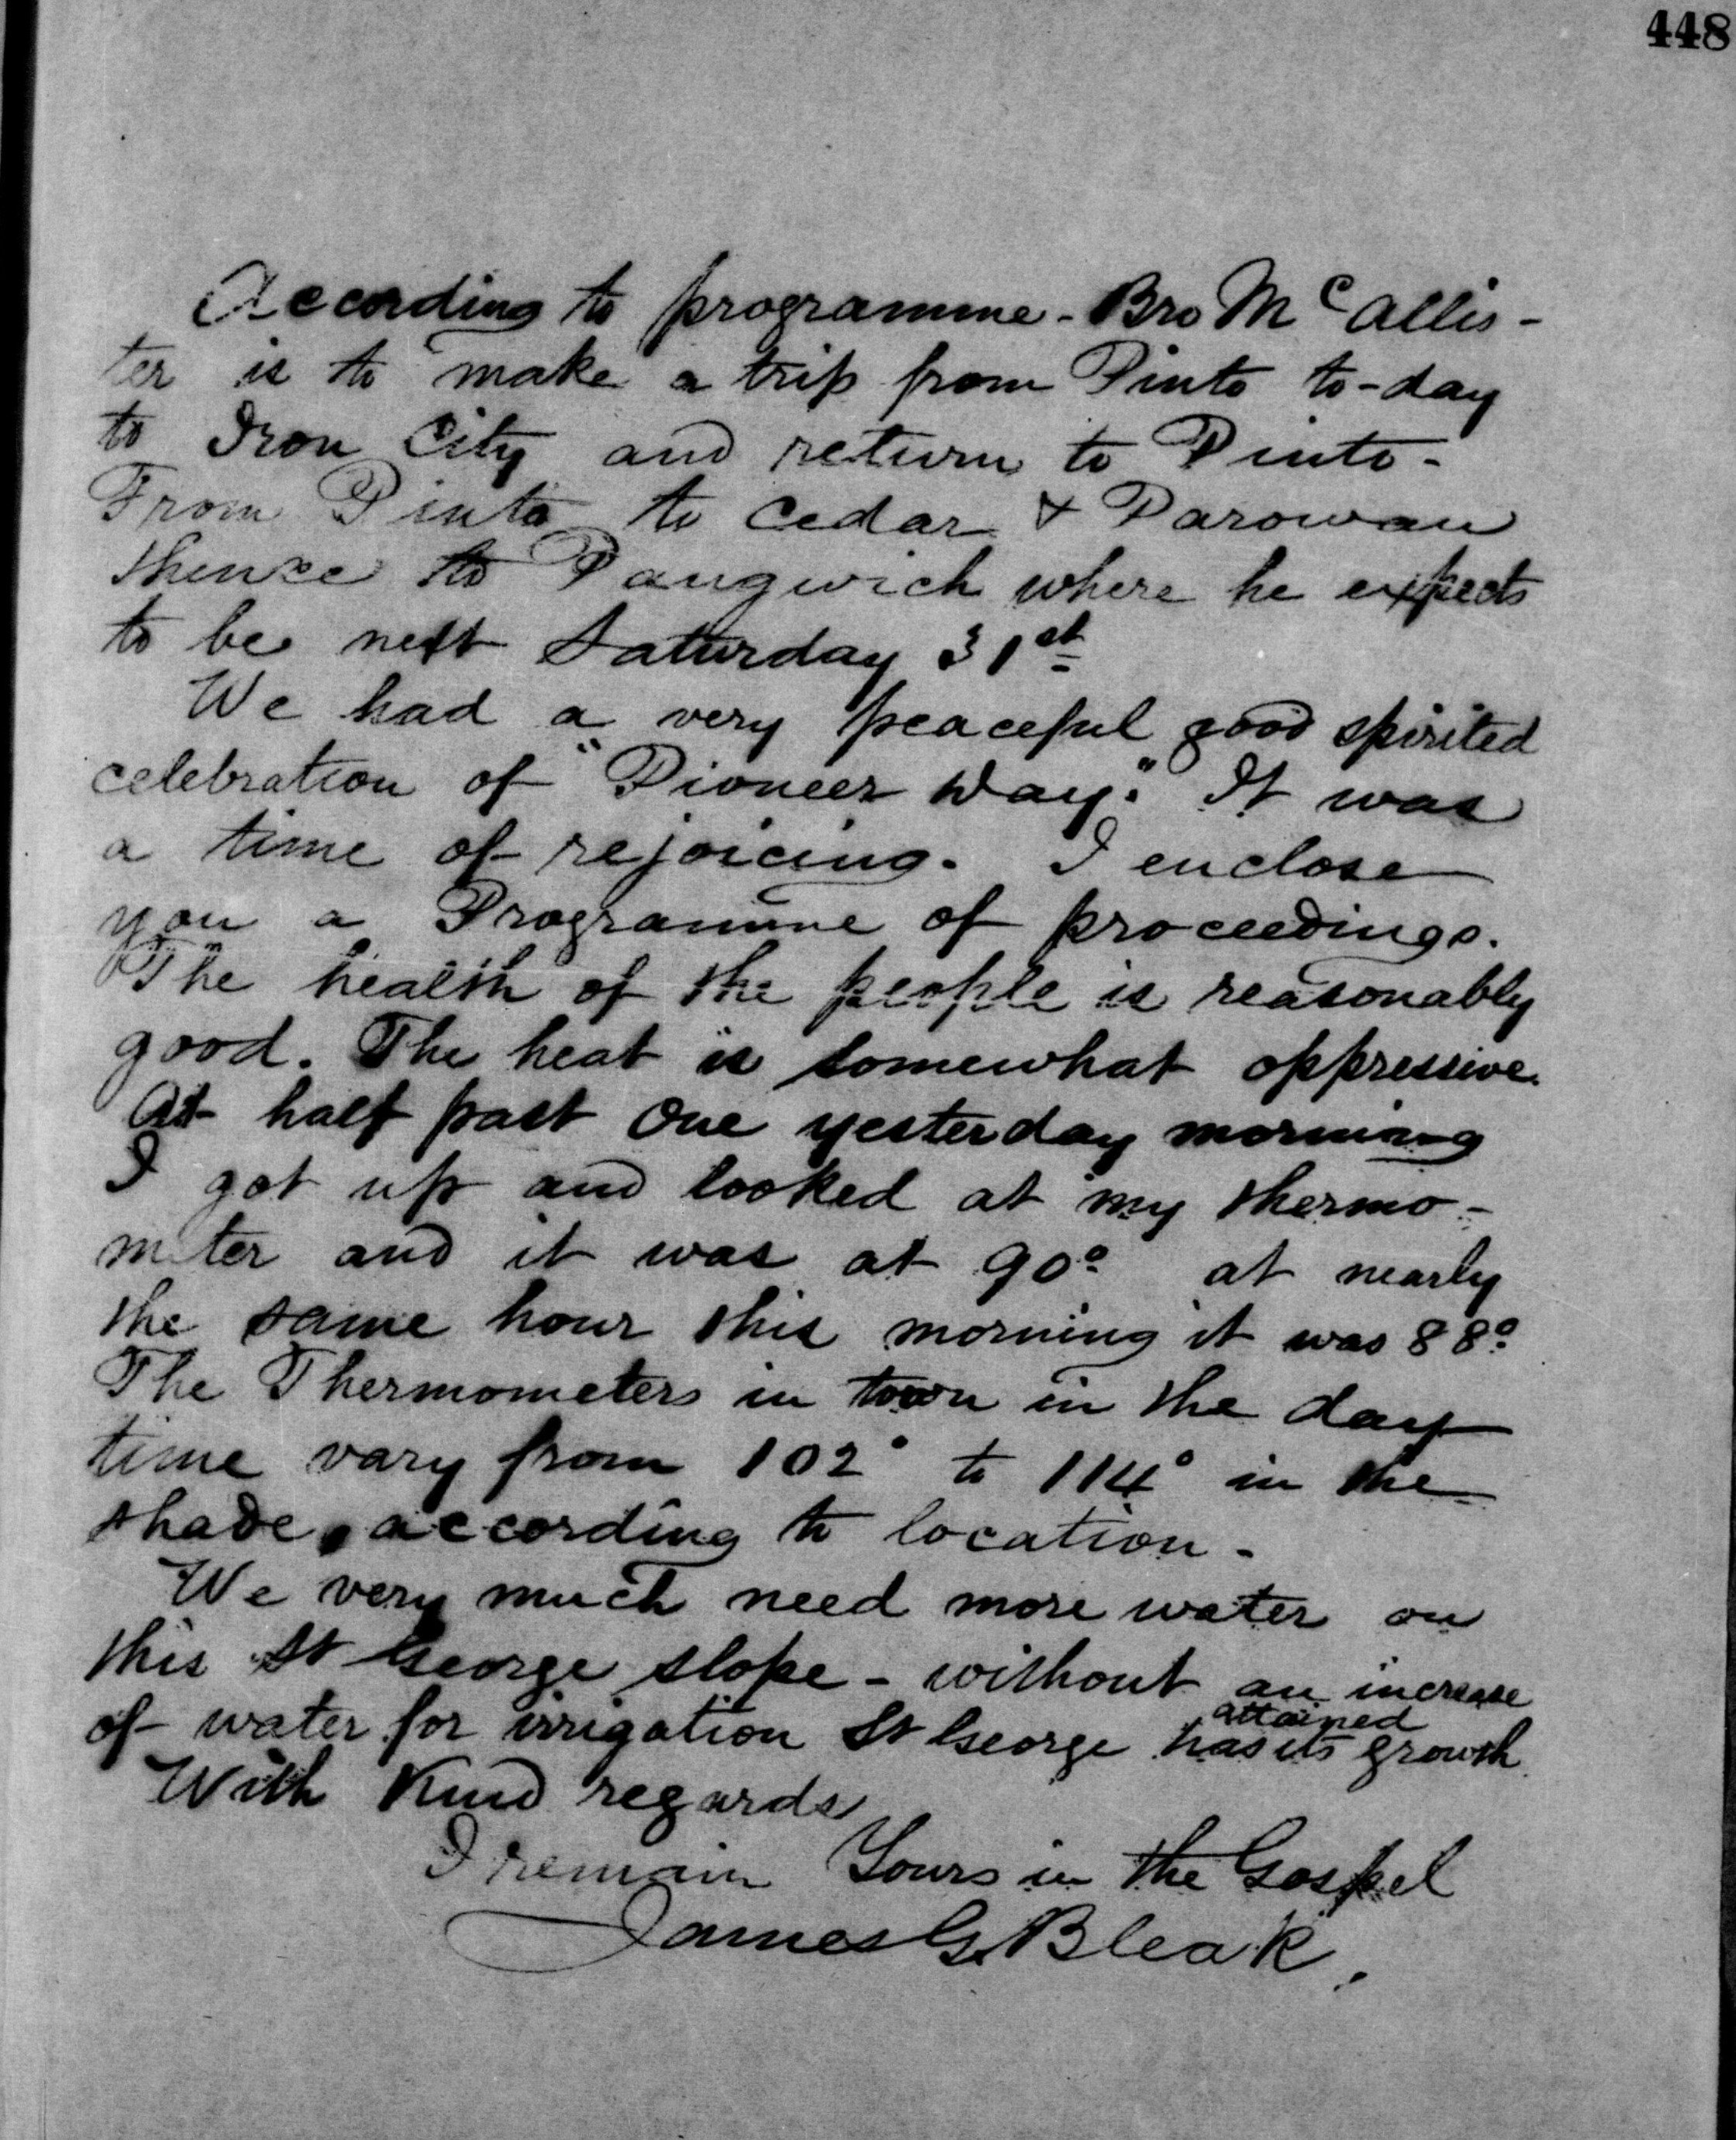 448
According to programme - Bro McAllis-
ter is to make a trip from Pinto to-day
to Iron City and return to Pinto -
From Pinto to Cedar & Parowan
thence to Pangwich where he expects
to be next Saturday 31st
We had a very peaceful good spirited
celebration of "Pioneer Day." It was
a time of rejoicing. I enclose
you a Programme of proceedings.
The health of the people is reasonably
good. The heat is somewhat oppressive.
At half past One yesterday morning
I got up and looked at my thermo-
meter and it was at 90° at nearly
the same hour this morning it was 88°
The Thermometers in town in the day
time vary from 102° to 114° in the
shade, according to location -
We very much need more water on
this St George slope - without an increase
attained
of water for irrigation St George has its growth.
With Kind regards
I remain Yours in the Gospel
James G. Bleak.